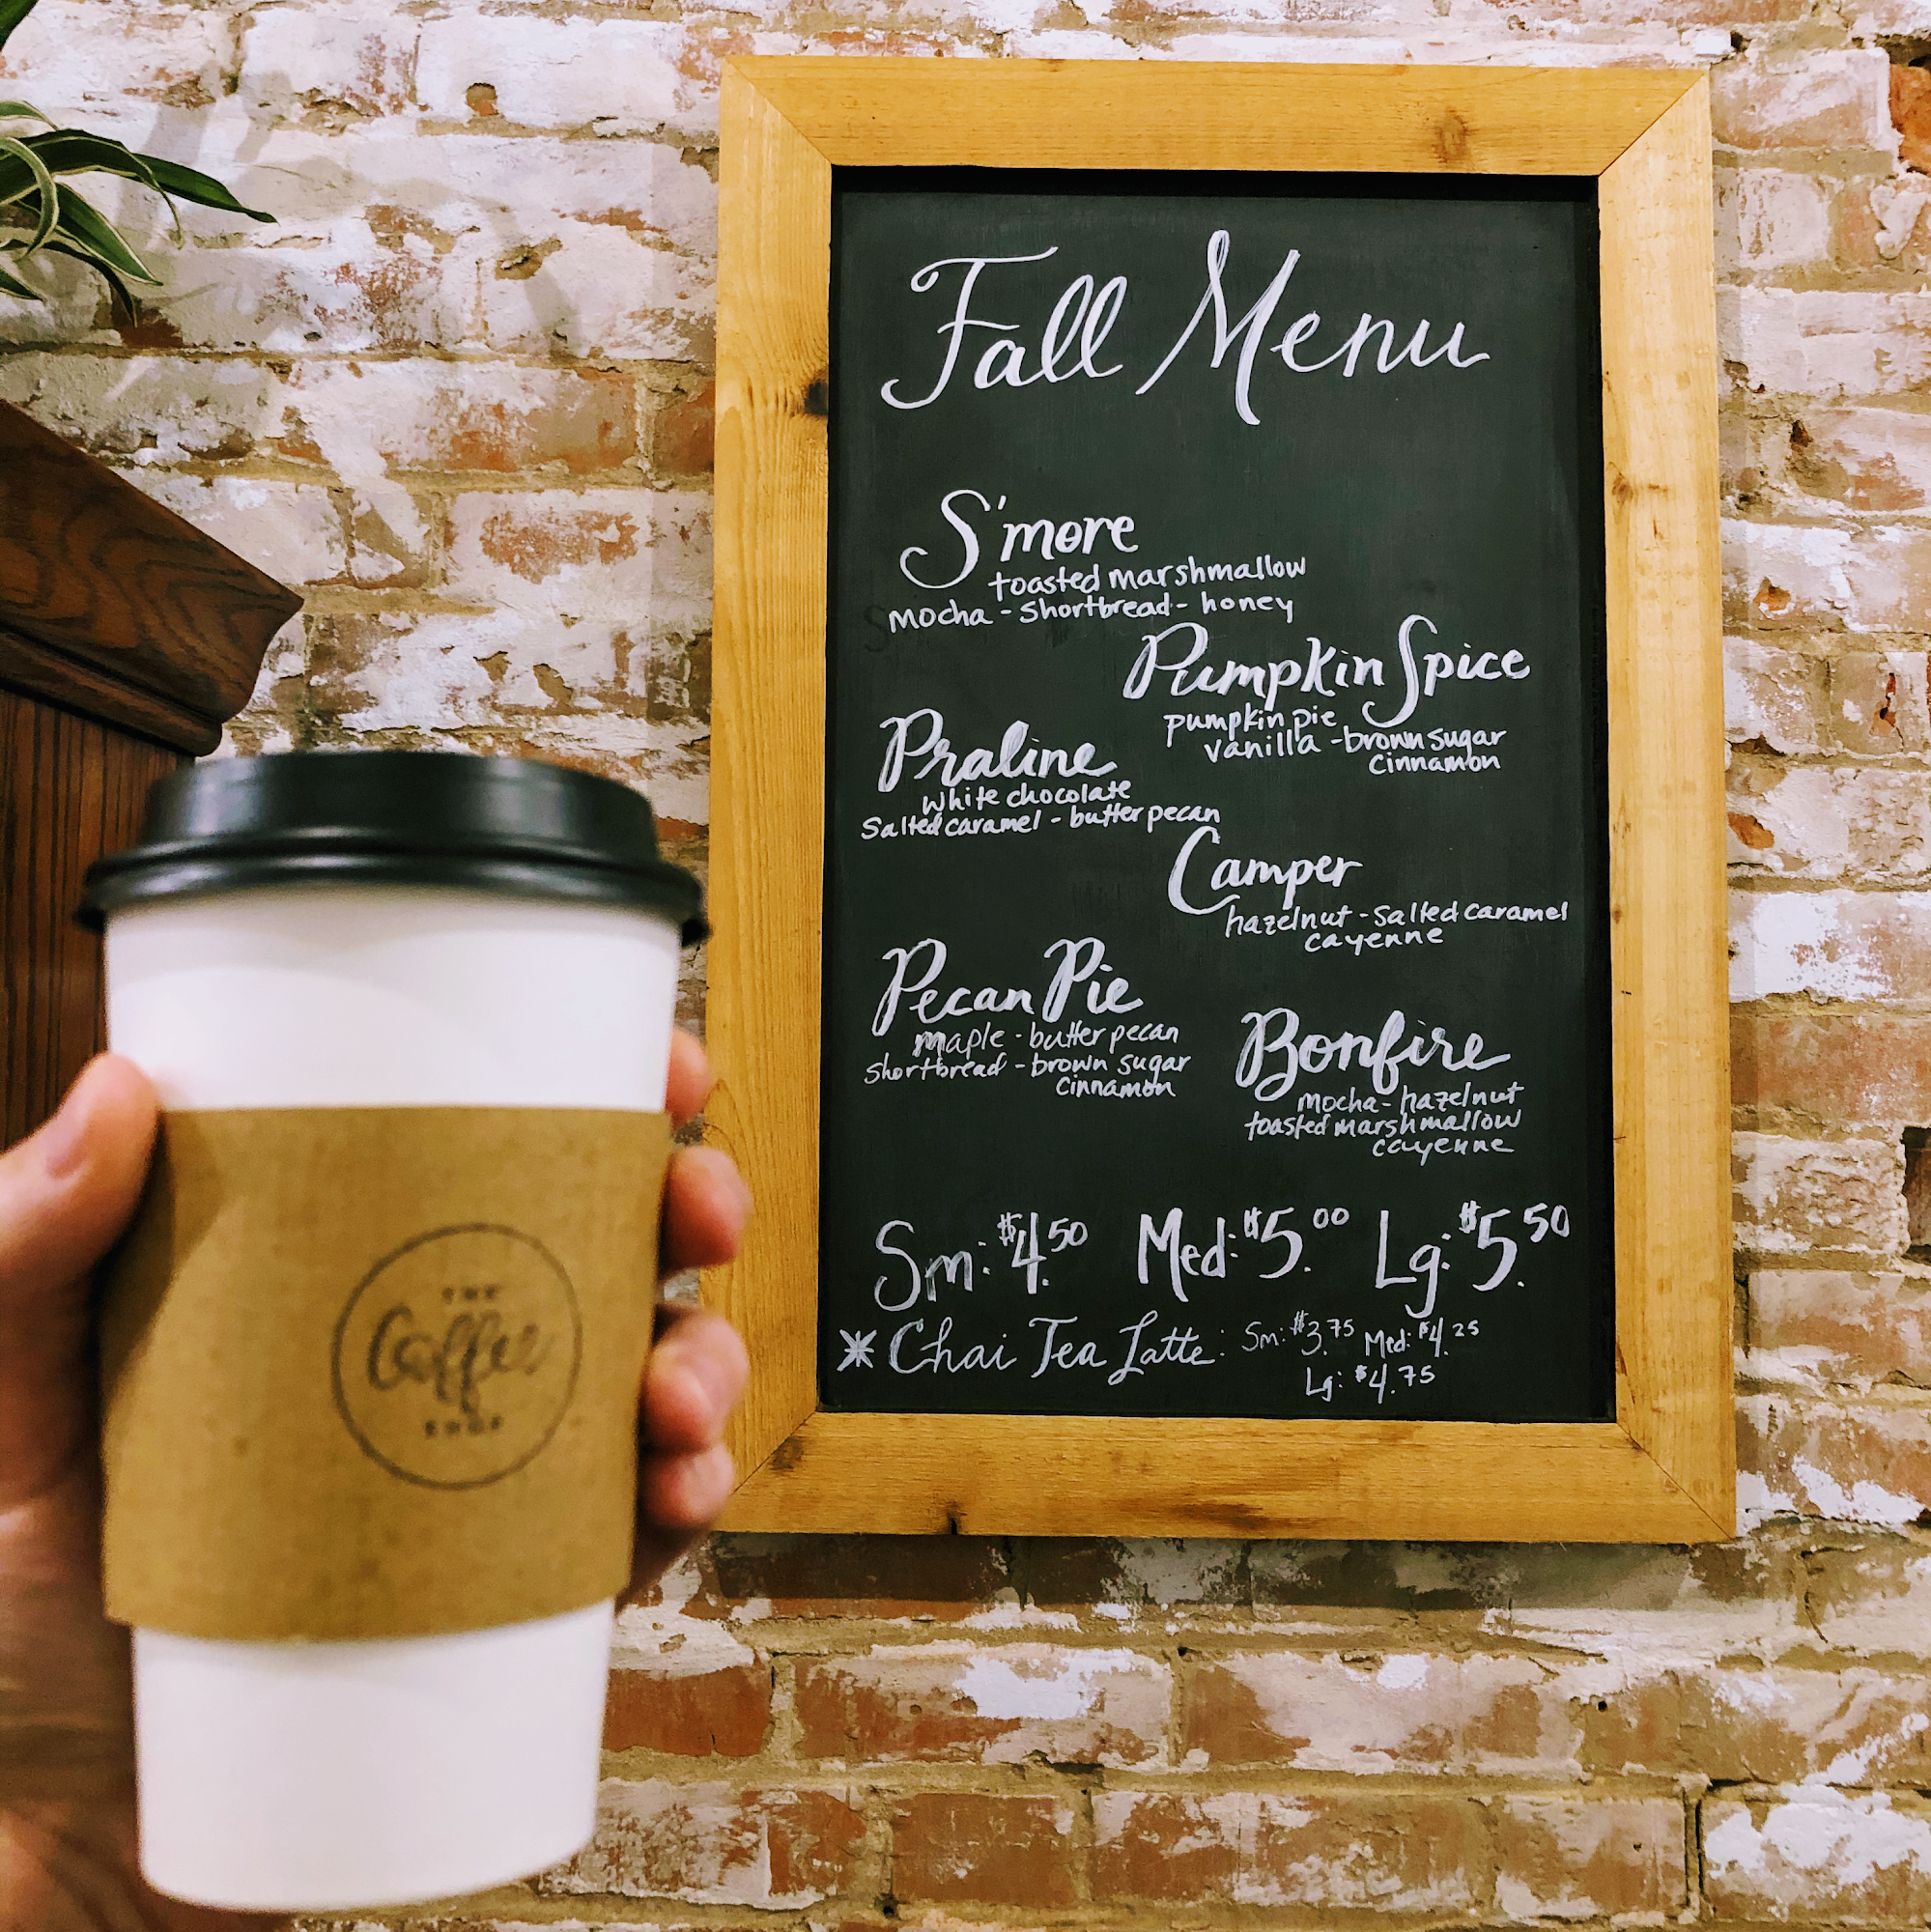 Fall Menu
S'more
toasted marshmallow
mocha - shortbread - honey
Pumpkin Spice
pumpkin pie
vanilla - brown sugar
cinnamon
Praline
white chocolate
salted caramel - butter pecan
Camper
hazelnut - salted caramel
cayenne
Pecan Pie
maple - butter pecan
shortbread - brown sugar
cinnamon
Bonfire
mocha - hazelnut
toasted marshmallow
cayenne
Sm: $4.50 Med: $5.00 Lg: $5.50
* Chai Tea Latte: Sm: $3.75 Med: $4.25
Lg: $4.75
THE
Coffee
SHOP